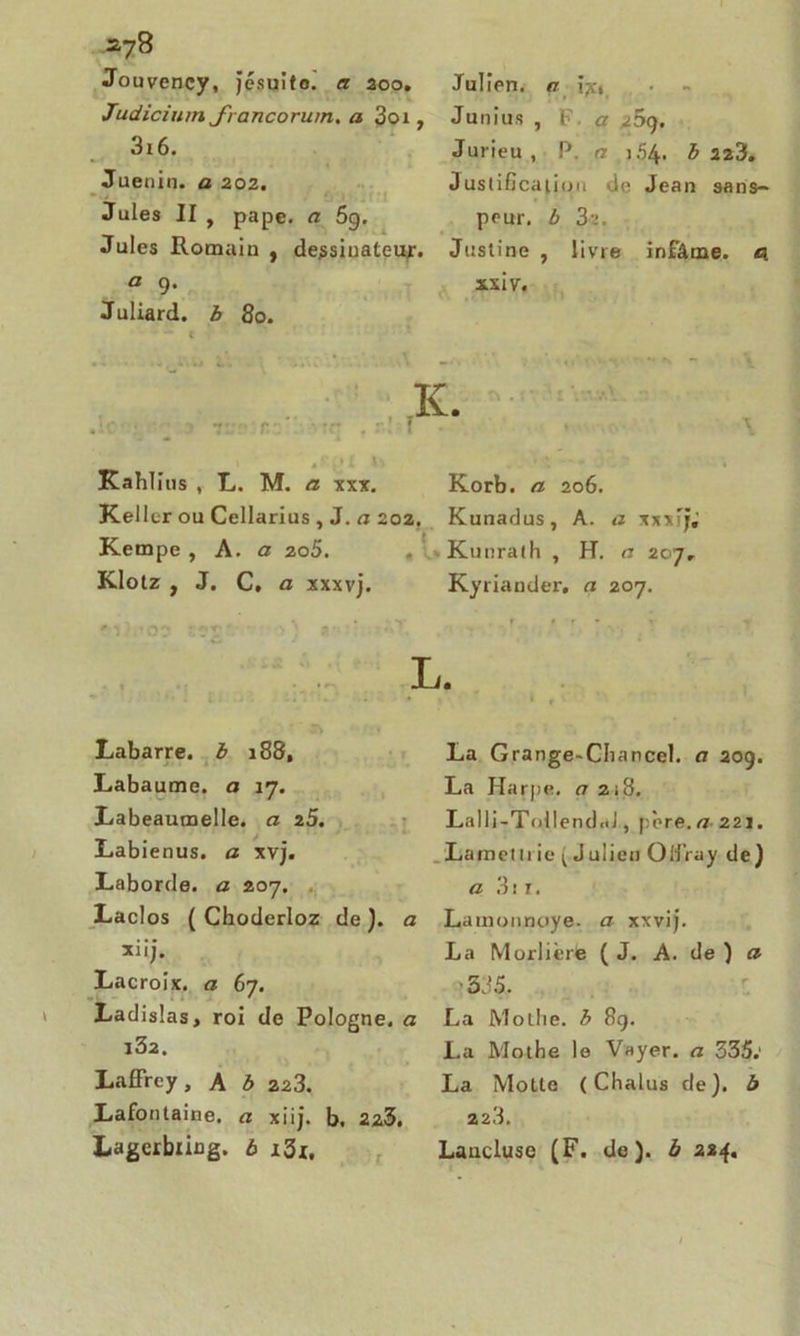 278
Jouvency, jésuite. a 200.
Judicium francorum. a 301,
316.
Juenin. a 202.
Jules II, pape. a 59.
Jules Romain, dessinateur.
a 9.
Juliard. b 80.
Julien. a ix.
Junius, F. a 259.
Jurieu, P. a 154. b 223.
Justification de Jean sans-
peur. b 32.
Justine, livre infâme. a
xxiv.
K.
Kahlius, L. M. a xxx.
Keller ou Cellarius, J. a 202.
Kempe, A. a 205.
Klotz, J. C. a xxxvj.
Korb. a 206.
Kunadus, A. a xxxij.
Kunrath, H. a 207.
Kyriander. a 207.
L.
Labarre. b 188.
Labaume. a 17.
Labeaumelle. a 25.
Labienus. a xvj.
Laborde. a 207.
Laclos (Choderloz de). a
xiij.
Lacroix. a 67.
Ladislas, roi de Pologne. a
132.
Laffrey, A b 223.
Lafontaine. a xiij. b. 223.
Lagerbring. b 131.
La Grange-Chancel. a 209.
La Harpe. a 218.
Lalli-Tollendal, père. a 221.
Lamettrie (Julien Offray de)
a 311.
Lamonnoye. a xxvij.
La Morlière (J. A. de) a
335.
La Mothe. b 89.
La Mothe le Vayer. a 335.
La Motte (Chalus de). b
223.
Lancluse (F. de). b 224.